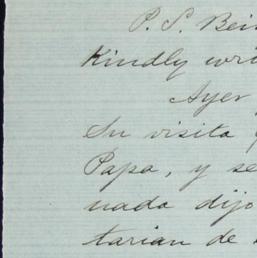 P. S. Bei
Kindly wri
Ayer
Su visita
Papa, y se
nada dijo
tarian de